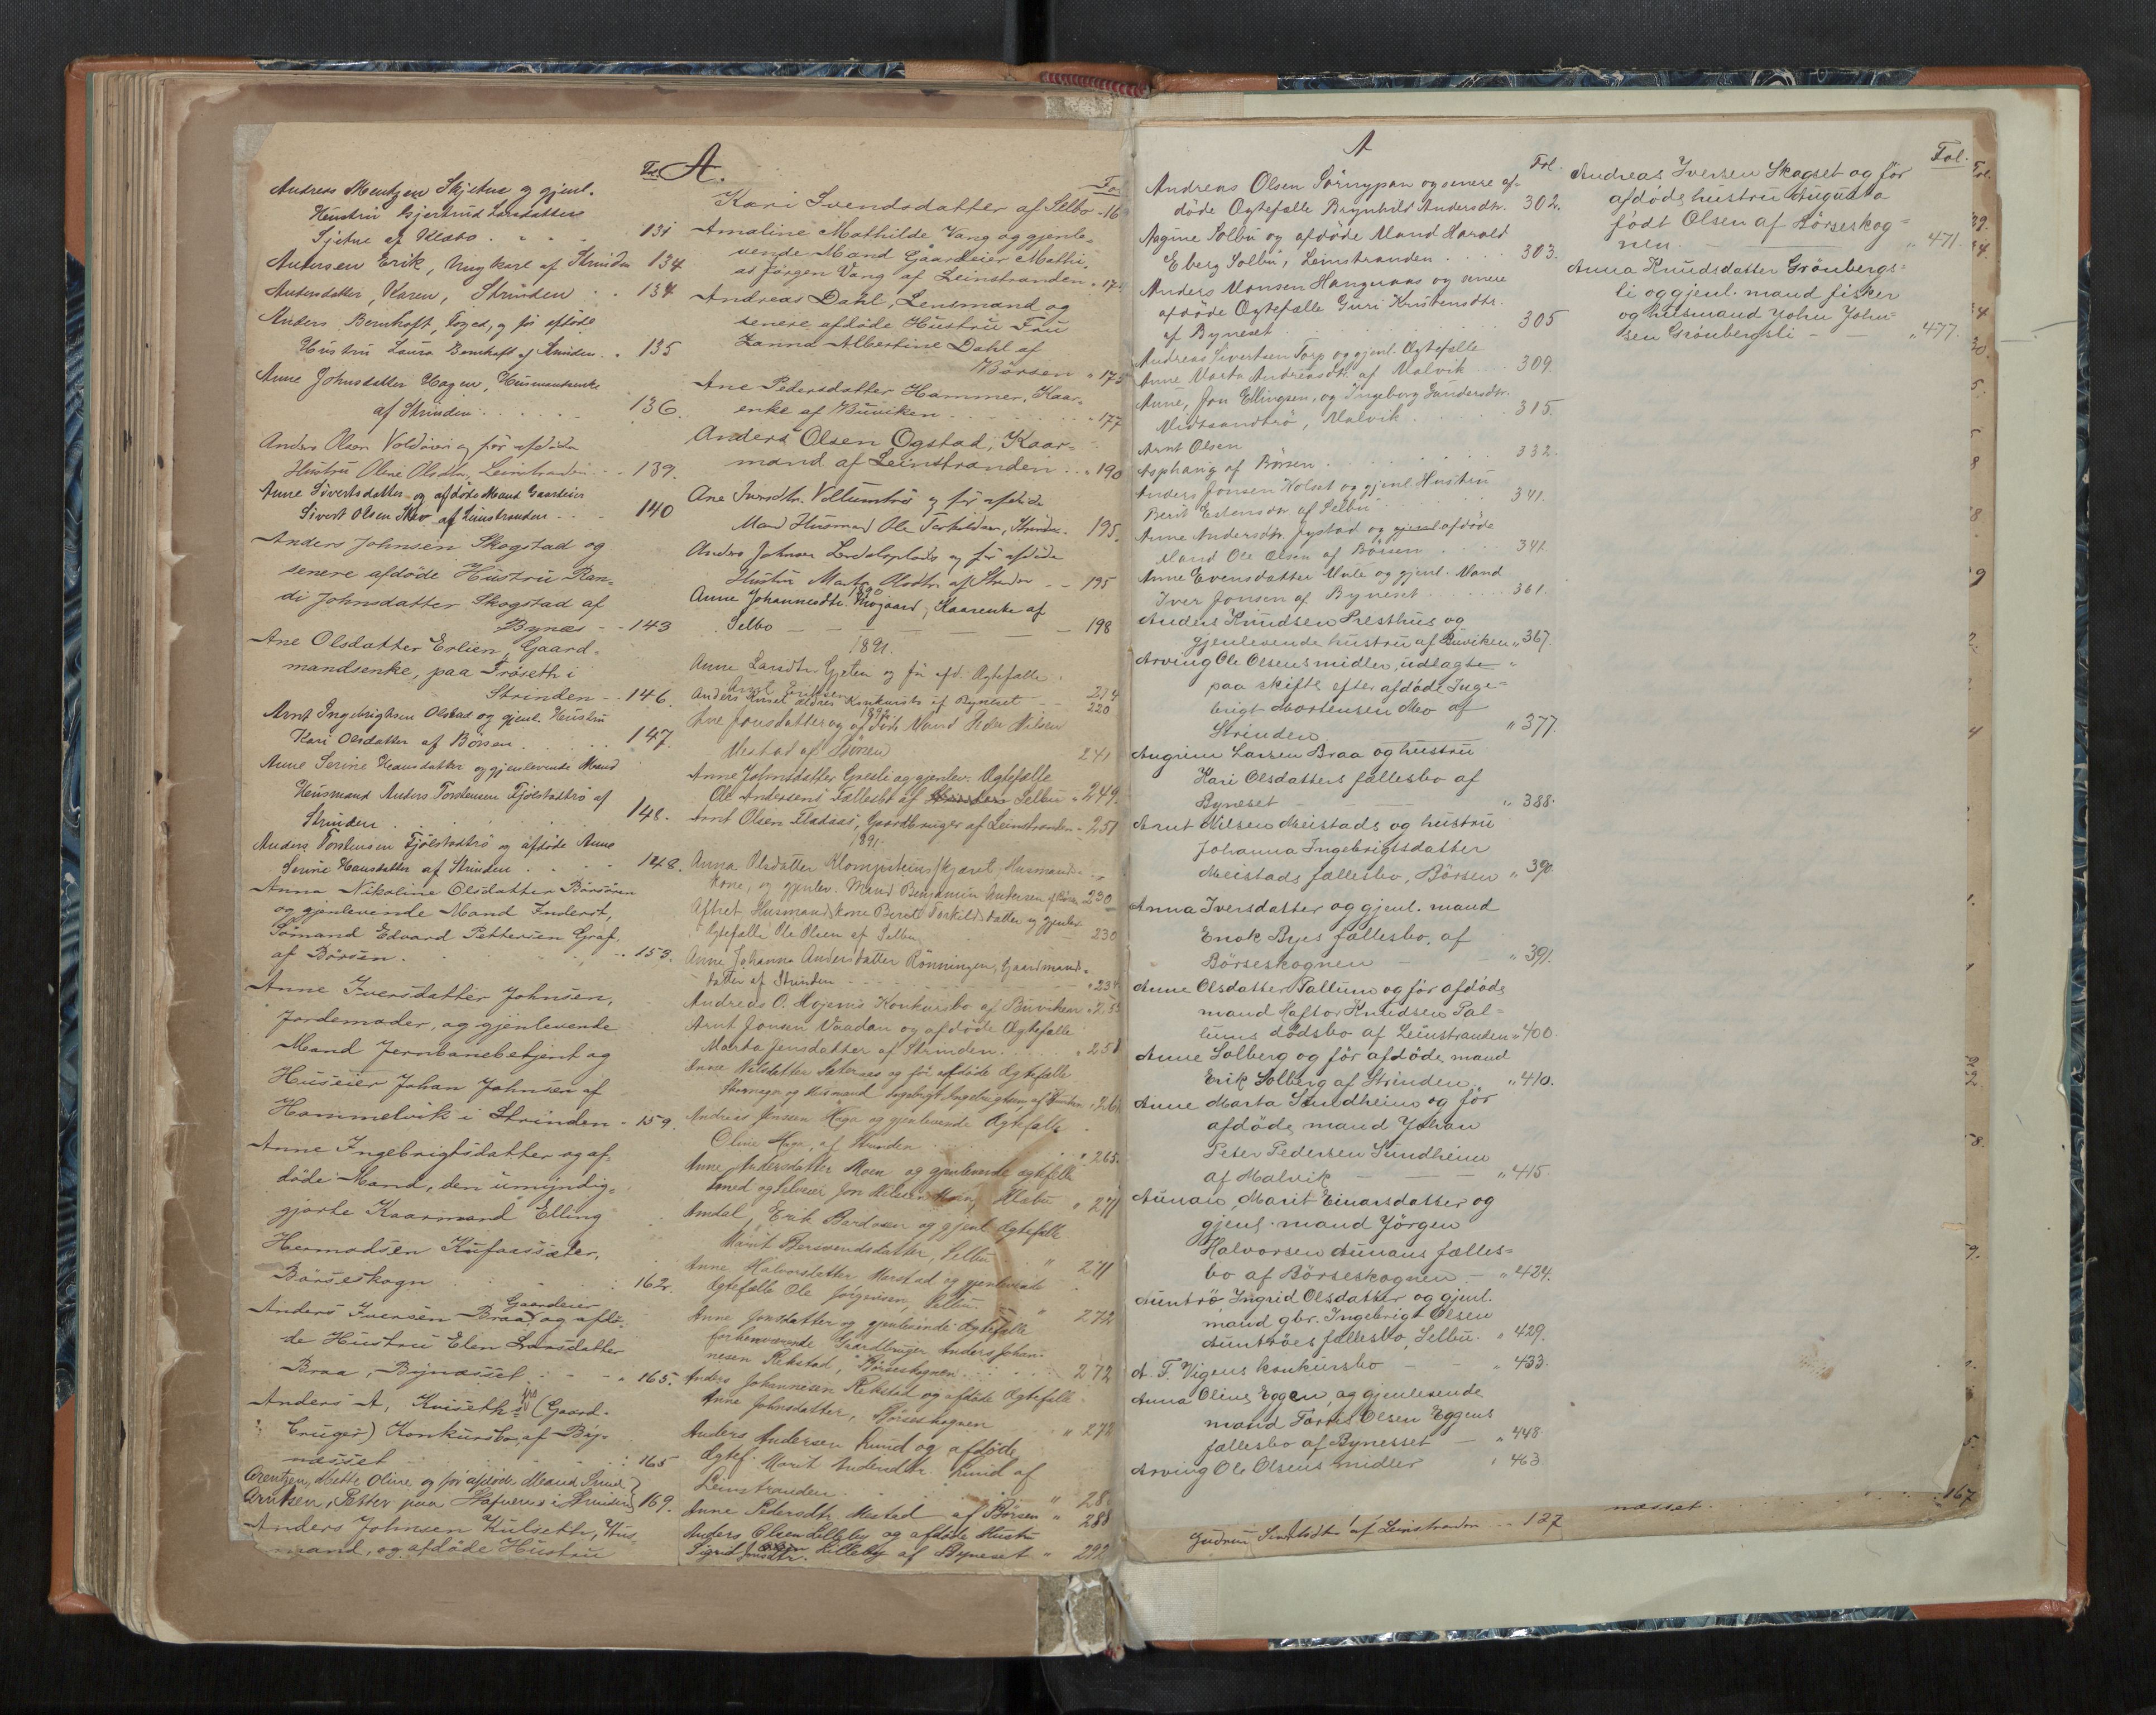 A.
Fol.
Andreas Mentzen Skjetne og gjenl.
Hustru Gjertrud Larsdatter
Sjetne af Klæbo . . . 131
Andersen Erik, Ungkarl af Strinden 134
Andersdatter, Karen, Strinden . . 134
Anders Bernhoft, Foged, og før afdöde
Hustru Laura Bernhoft af Strinden . . 135
Anne Johnsdatter Hagen, Husmandsenke
af Strinden . . . . 136.
Anders Olsen Voldöien og för afdöde
Hustru Olene Olsdtr. Leinstranden . . 139.
Anne Sivertsdatter og afdöde Mand Gaardeier
Sivert Olsen Mo af Leinstranden . . 140
Anders Johnsen Skogstad og
senere afdöde Hustru Ran-
di Johnsdatter Skogstad af
Bynæs - - 143
Ane Olsdatter Erlien, Gaard-
mandsenke, paa Tröseth i
Strinden - - 146.
Arnt Ingebrigtsen Olstad og gjenl. Hustru
Kari Olsdatter af Börsen . . . 147.
Anne Serine Hansdatter og gjenlevende Mand
Husmand Anders Torstensen Fjölstadtrö af
Strinden . . . 148.
Anders Torstensen Fjölstadtrö og afdöde Anne
Serine Hansdatter af Strinden . . . 148.
Anna Nikoline Olsdatter Börsören
og gjenlevende Mand Inderst,
Sömand Edvard Pettersen Graf,
af Börsen. . . . 153.
Anne Iversdatter Johnsen,
Jordemoder, og gjenlevende
Mand Jernbanebetjent og
Huseier Johan Johnsen af
Hommelvik i Strinden - 159.
Anne Ingebrigtsdatter og af-
döde Mand, den umyndig-
gjorte Kaarmand Elling
Hermodsen Kufaassæter,
Börseskogn . . . 162.
Anders Iversen Braa, Gaardeier og afdö-
de Hustru Elen Larsdatter
Braa, Bynæsset . . . 165.
Anders A. Kviseths (Gaard-
bruger) Konkursbo, af Byn-
næsset . . . 165
Arentzen, Mette Oline og før afdöde Mand
Arntsen, Petter paa Hafnen i Strinden 169.
Anders Johnsen Kulseth, Hus-
mand, og afdöde Hustru
Fol.
Kari Svendsdatter af Selbo - 16
Amaline Mathilde Vang og gjenle-
vende Mand Gaardeier Mathi-
as Jörgen Vang af Leinstranden . 17
Andreas Dahl, Lensmand og
senere afdöde Hustru Fru
Hanna Albertine Dahl af
Börsen . 175
Ane Pedersdatter Hammer, Kaar-
enke af Buviken . . . 177
Anders Olsen Ogstad, Kaar-
mand af Leinstranden . . 190
Ane Iversdtr. Vollumtrö og før afdöde
Mand Husmand Ole Torkildsen, Strinden . 195.
Anders Johnsen Lerdalsplads og før afdöde
Hustru Marta Olsdtr. af Strinden - - 195
1890
Anne Johannesdtr. Mogaard, Kaarenke af
Selbo - - - 198
1891.
Anne Larsdtr. Gjeten og før afd. Ægtefælle
Arnt Eriksen 214
Anders Kusel ældres Konkursbo af Bynesset - - 220
1892
Ane Jonsdatter og afdöde Mand Peder Nilsen
Mestad af Börsen 241
Anne Johnsdatter Gresli og gjenlev. Ægtefælle
Ole Andersens Fællesbo af Strinden Selbu . 249.
Arnt Olsen Fladaas, Gaardbruger af Leinstranden - 251
1891.
Anna Olsdatter Klompsteinskjæret, Husmands-
kone, og gjenlev. Mand Benjamin Andersen af Börs. 230
Aftret, Husmandskone Berit Torkildsdatter og gjenlev.
Ægtefælle Ole Olsen af Selbu 230
Anne Johanna Andersdatter Rönningen, Gaardmands-
datter af Strinden - - - . 234
Andreas O. Hojems Konkursbo af Buviken . 253
Arnt Jonsen Vaadan og afdöde Ægtefælle
Marta Jensdatter af Strinden. . . 258
Anne Nilsdatter Sæternes og før afdöde Ægtefælle
Skomager og Husmand Ingebrigt Ingebrigtsen, af Strinden . 26
Andreas Jensen Haga og gjenlevende Ægtefælle
Oline Haga, af Strinden . . . 265.
Anne Andersdatter Moen og gjenlevende Ægtefælle
Smed og Selveier Jon Nilsen Moen, Klæbu . 271
Amdal, Erik Bardosen og gjenl. Ægtefælle
Marit Bersvendsdatter, Selbu " 271
Anne Halvorsdatter Marstad og gjenlevende
Ægtefælle Ole Jorgensen, Selbu. - " 272
Anne Jonsdatter og gjenlevende Ægtefælle
forhenværende Gaardbruger Anders Johan-
nesen Rekstad, Börseskognen . . . 272
Anders Johannesen Rekstad og afdöde Ægtefælle
Anne Johnsdatter, Börseskognen " 272
Anders Andersen Lund og afdöde
Ægtef. Marit Andersdtr. Lund af
Leinstranden . . . " 28
Anne Pedersdtr. Mestad af Börsen " 288
Anders Olsen Lilleby og afdöde Hustru
Sigrid Jonsdtr. Lilleby af Byneset " 292
A
Fol.
Andreas Olsen Sörnypan og senere af-
döde Ægtefælle Brynhild Andersdtr. 302.
Aagine Solbu og afdöde Mand Harald
Eberg Solbu, Leinstranden . . . 303.
Anders Monsen Hangraas og senere
afdöde Ægtefælle Guri Kristensdtr.
af Byneset . . . 305
Andreas Sivertsen Torp og gjenl. Ægtefælle
Anne Marta Andreasdtr. af Malvik . . 309.
Aune, Jon Ellingsen, og Ingeborg Gundersdtr.
Midtsandtrö, Malvik . 315.
Arnt Olsen
Asphaug af Börsen . . . 332.
Anders Jonsen Kolset og gjenl. Hustru
Berit Estensdtr. af Selbu . . . 341.
Anne Andersdtr. Jystad og gjenl afdöde
Mand Ole Olsen af Börsen . . . 341.
Anne Evensdatter Mule og gjenl. Mand
Iver Jonsen af Byneset . . . 361.
Anders Knudsen Presthus og
gjenlevende hustru af Buviken " 367
Arving Ole Olsens midler, udlagte
paa skifte efter afdöde Inge-
brigt Mortensen Mo af
Strinden " 377.
Angrim Larsen Braa og hustru
Kari Olsdatters fællesbo af
Byneset - - " 388.
Arnt Nilsen Meistads og hustru
Johanna Ingebrigtsdatter
Meistads fællesbo, Börsen " 390.
Anna Iversdatter og gjenl. mand
Enok Byes fællesbo, af
Börseskognen - " 391.
Anne Olsdatter Tallum og før afdöde
mand Haftor Knudsen Tal-
lums dödsbo af Leinstranden " 400.
Anne Solberg og før afdöde mand
Erik Solberg af Strinden. " 410.
Anne Marta Sundheim og for
afdöde mand Johan
Peter Pedersen Sundheim
af Malvik - - - " 415.
Aunan, Marit Einarsdatter og
gjenl. mand Jörgen
Halvorsen Aunans fælles-
bo af Börseskognen - " 424.
Auntrö, Ingrid Olsdatter og gjenl.
mand gbr. Ingebrigt Olsen
Auntröes fællesbo, Selbu. " 429.
A. F. Vigens konkursbo - - " 433.
Anna Oline Eggen, og gjenlevende
mand Torres Olsen Eggens
fællesbo af Bynesset - " 448.
Arving Ole Olsens midler " 463.
Gudrun af Leinstranden . . 127
Fol.
Andreas Iversen Skogset og før
afdöde hustru Augusta
født Olsen af Börseskog-
nen. " 471.
Anna Knudsdatter Grönbergs-
li og gjenl. mand fisker
og husmand John John-
sen Grönbergsli - - " 477.
næsset . . . 167
Fol.